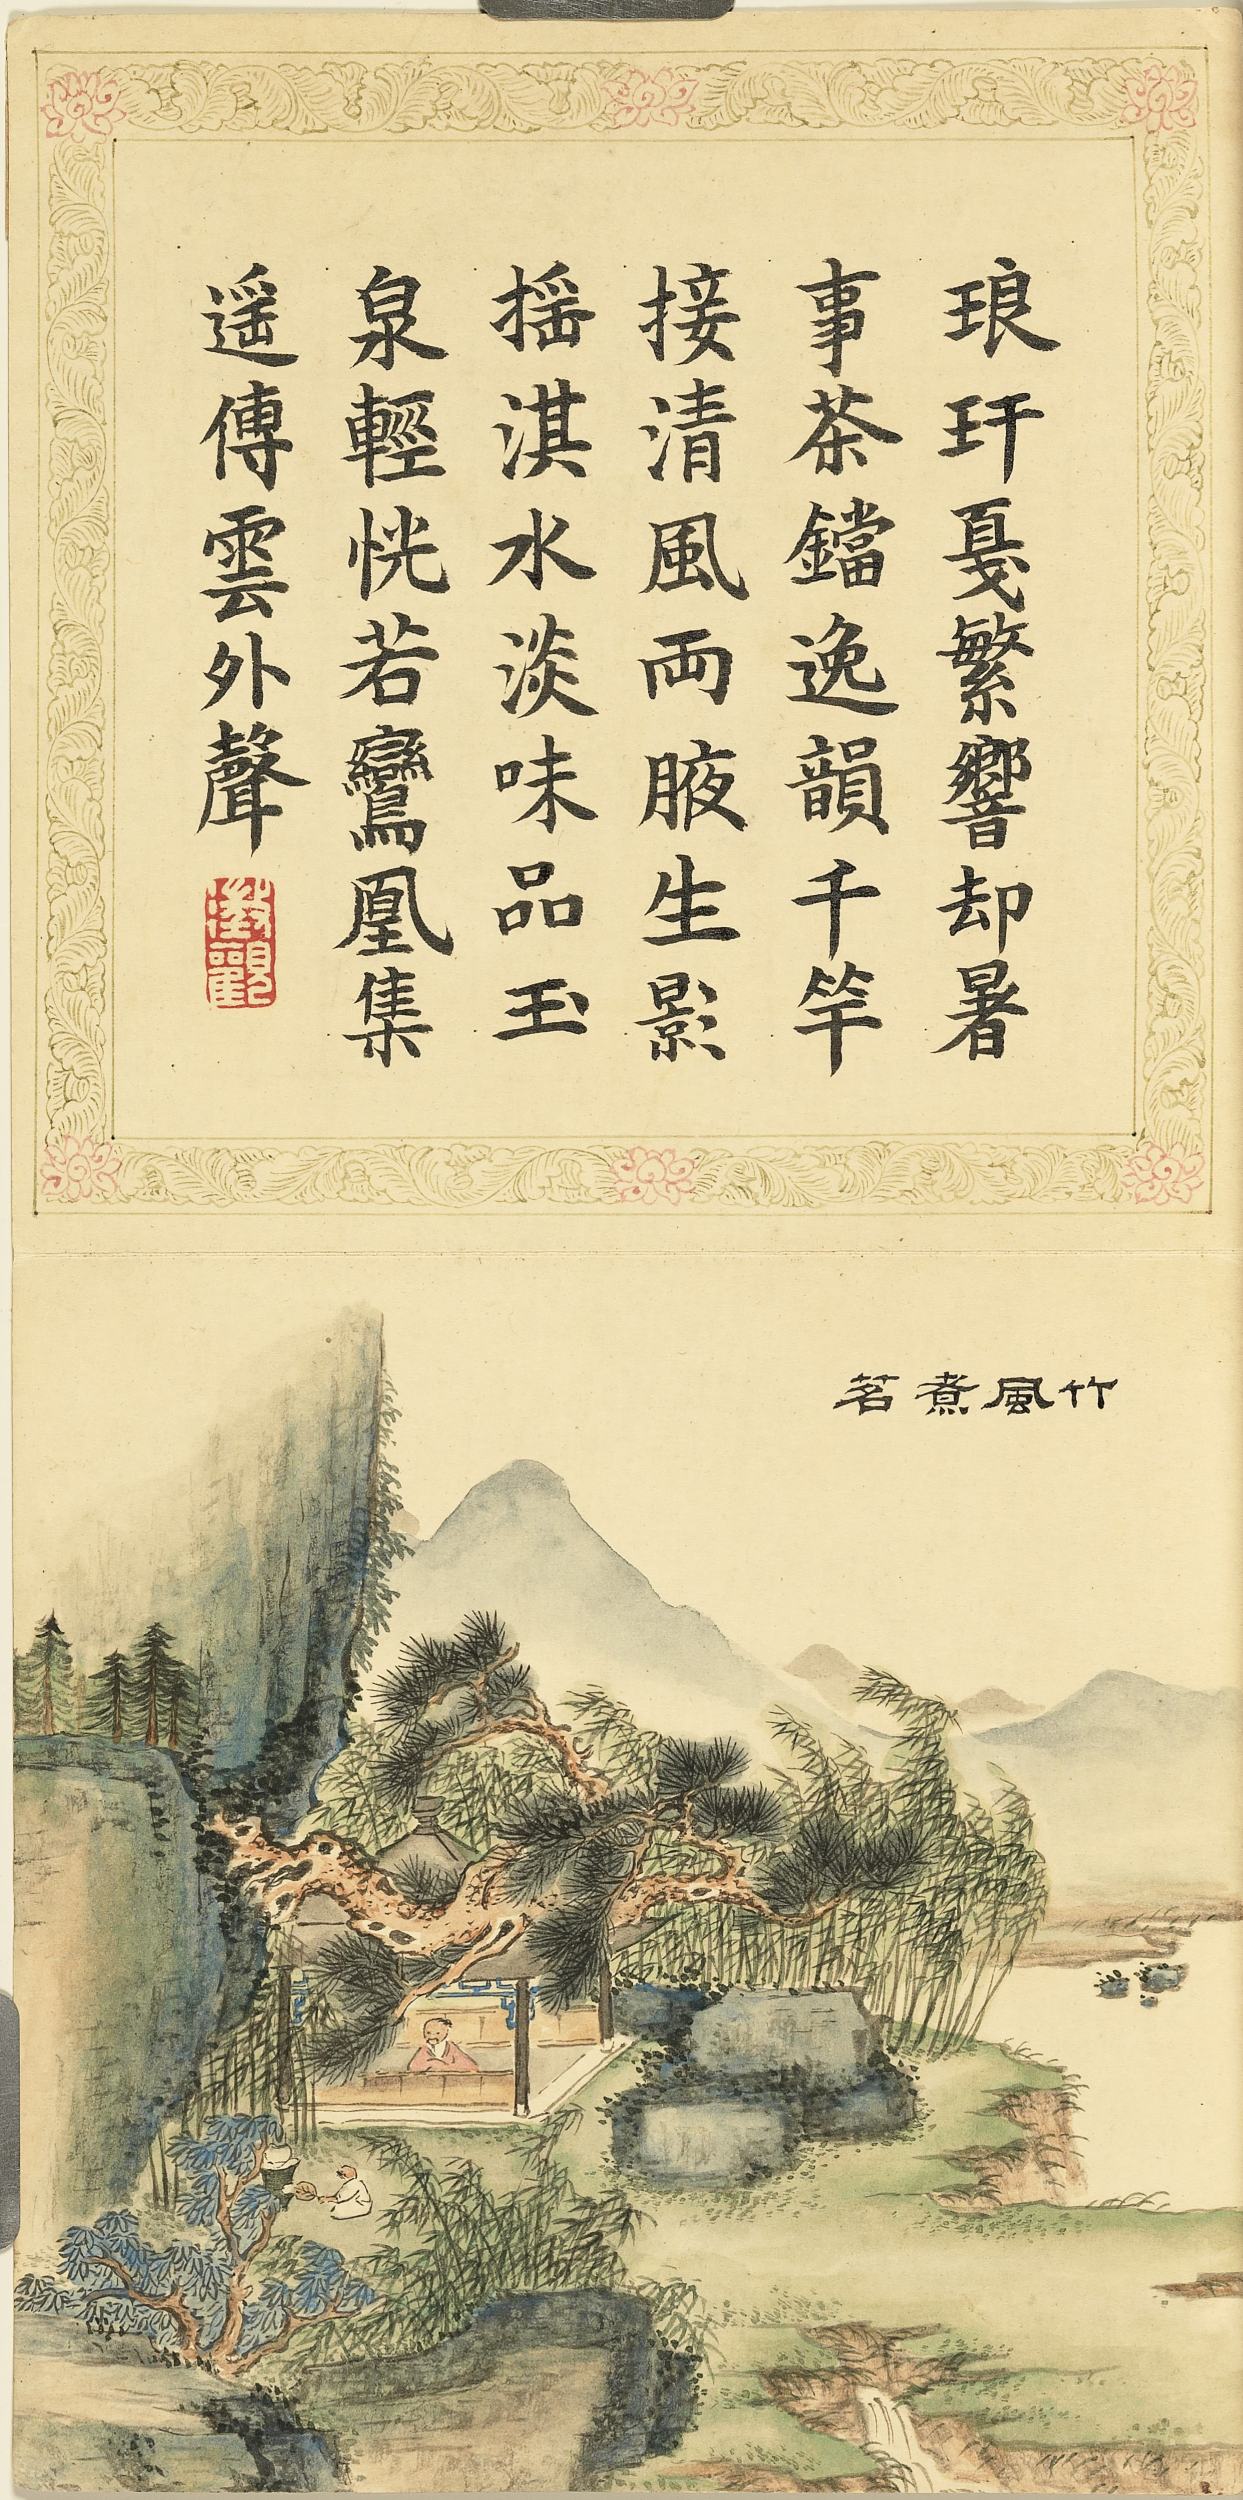 琅玕戛繁響却暑
事茶鐺逸韻千竿
接清風両腋生影
揺淇水淡味品玉
泉輕恍若鸞凰集
遥傳雲外聲
竹風煮茗